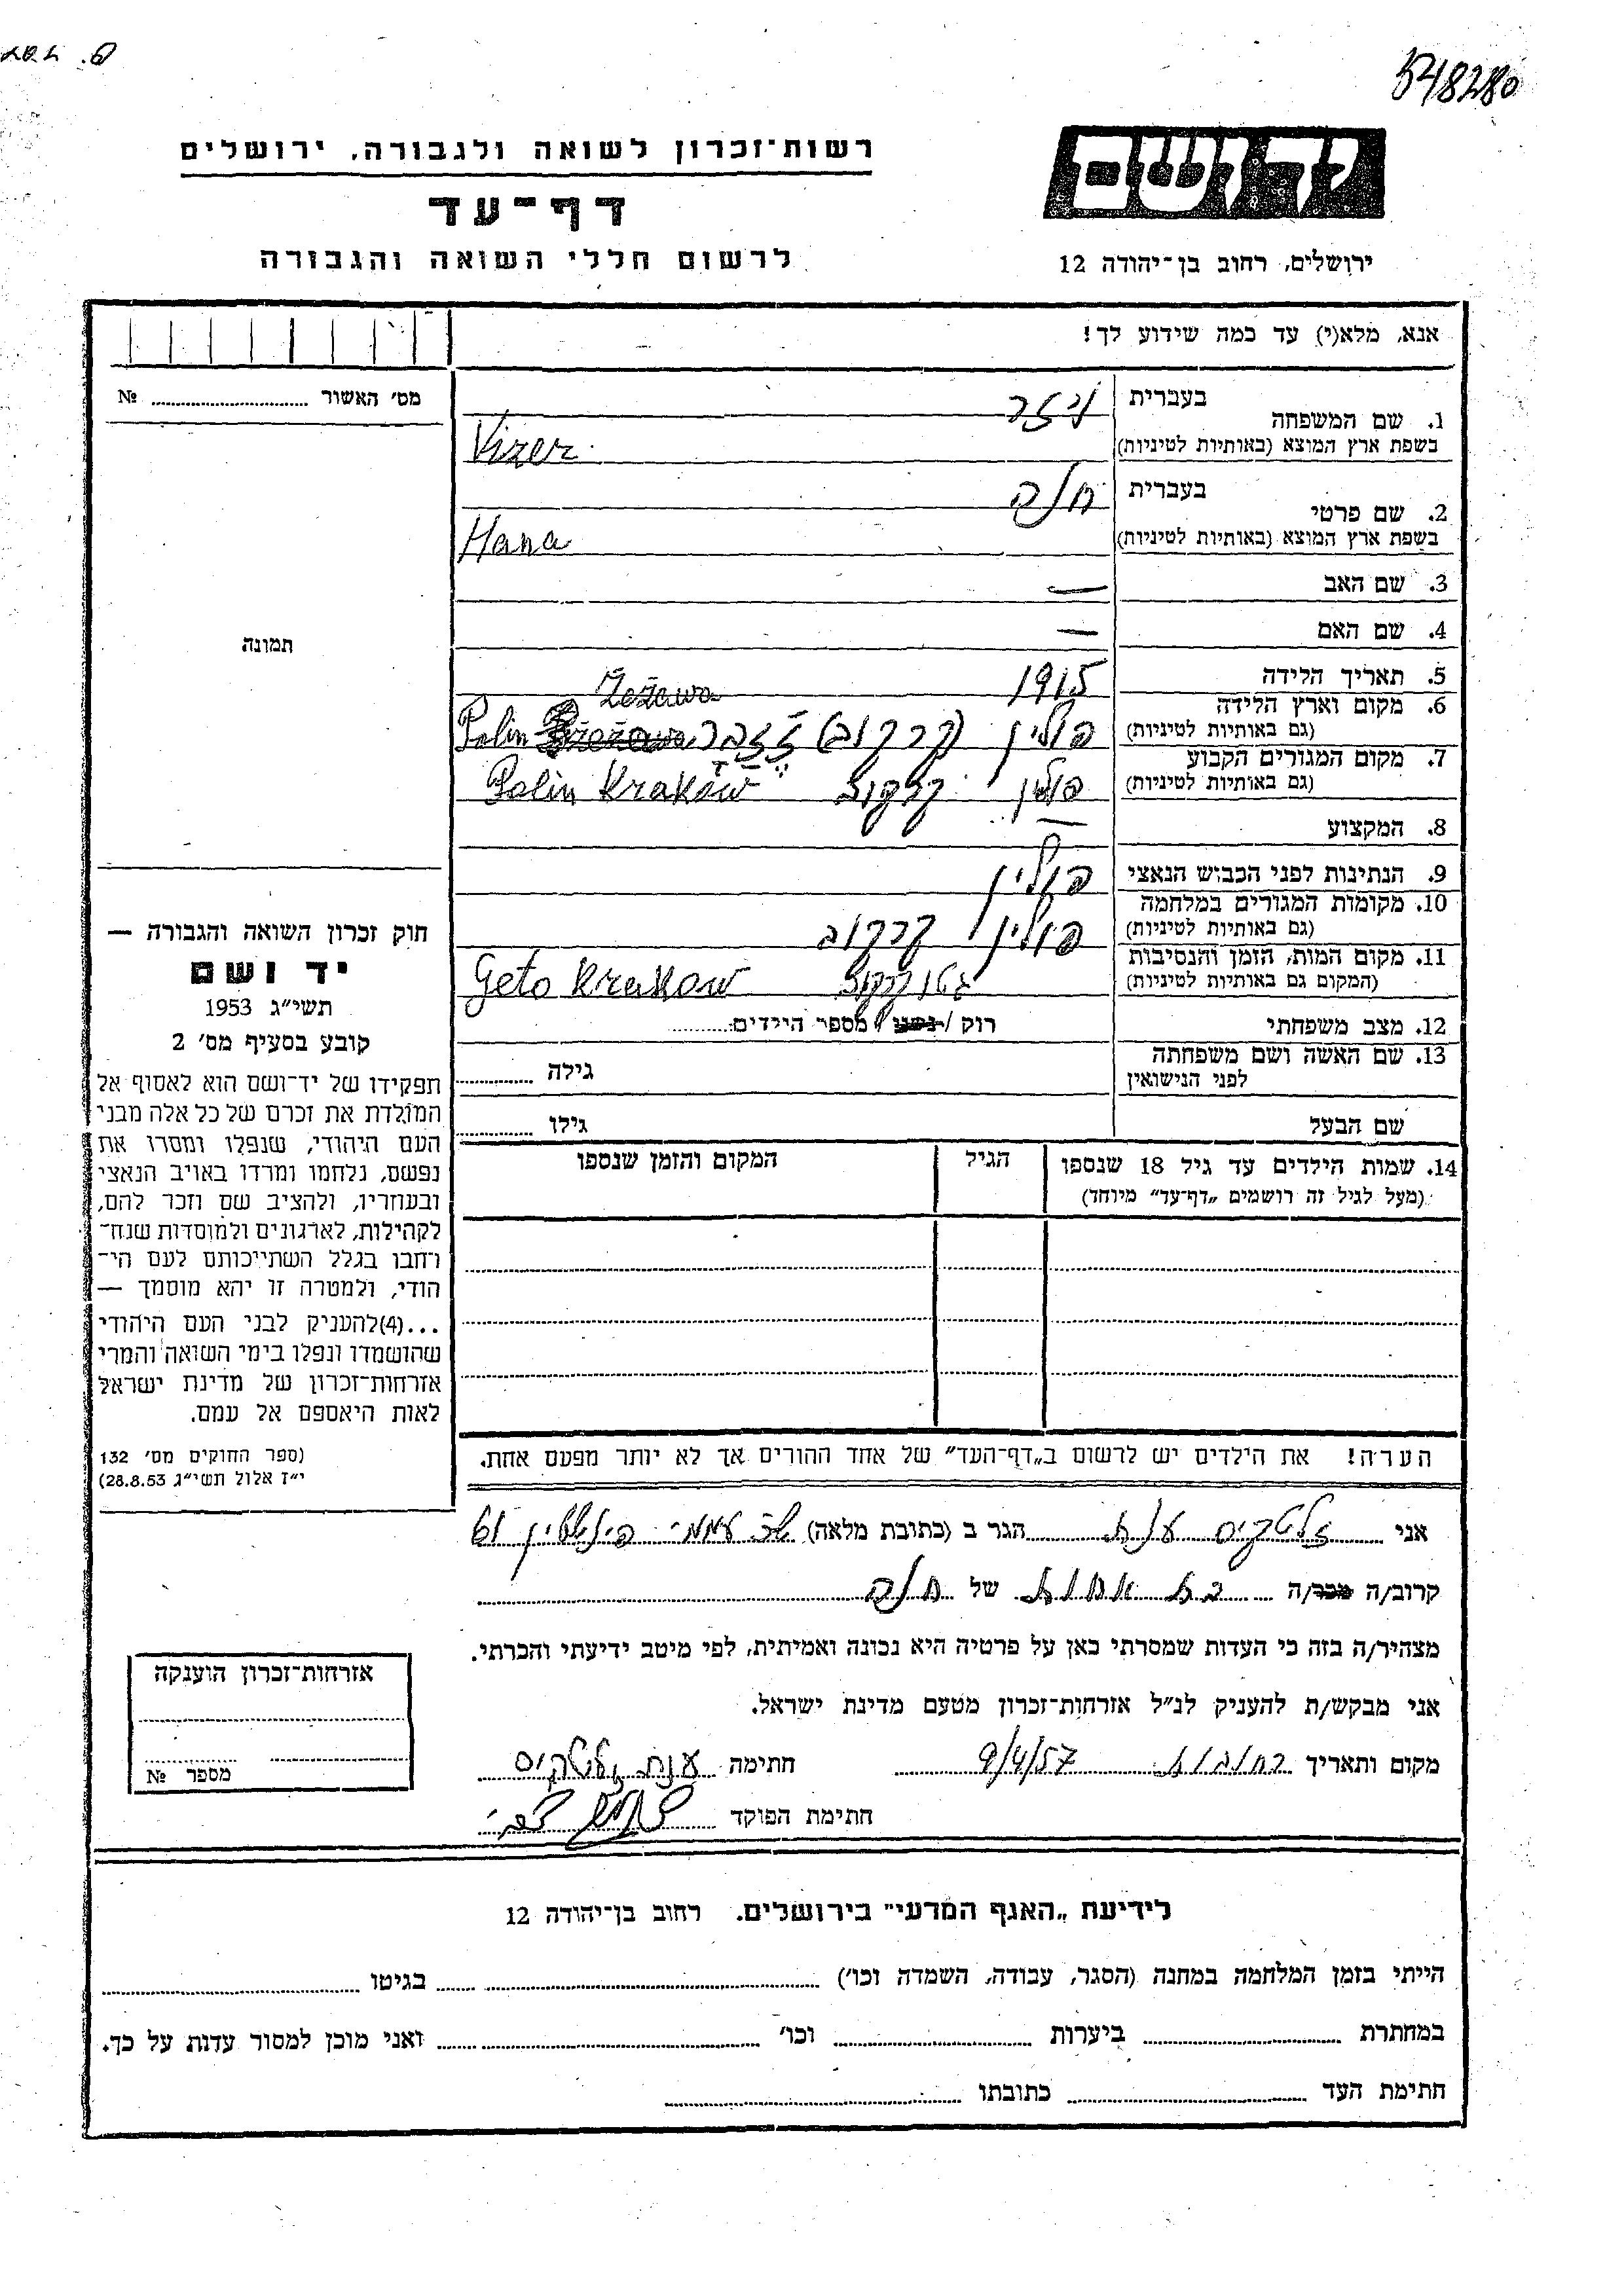 548280
רשות־זכרון לשואה ולגבורה, ירושלים
יד ושם
דף־עד
לרשום חללי השואה והגבורה
ירושלים, רחוב בן־יהודה 12
אנא, מלא(י) עד כמה שידוע לך!
מס׳ האשור № 
1. שם המשפחה בעברית ויזר
בשפת ארץ המוצא (באותיות לטיניות) Vizer
2. שם פרטי בעברית חנה
בשפת ארץ המוצא (באותיות לטיניות) Hana
3. שם האב —
4. שם האם —
תמונה
5. תאריך הלידה 1915
Zeżawa
6. מקום וארץ הלידה (גם באותיות לטיניות) פולין (קרקוב) Polin
7. מקום המגורים הקבוע (גם באותיות לטיניות) פולין קרקוב Polin Kraków
8. המקצוע —
9. הנתינות לפני הכבוש הנאצי פולין
10. מקומות המגורים במלחמה (גם באותיות לטיניות) פולין קרקוב
11. מקום המות, הזמן והנסיבות (המקום גם באותיות לטיניות) גטו קרקוב Geto Krakow
12. מצב משפחתי רוק / נשוי / מספר הילדים
13. שם האשה ושם משפחתה לפני הנישואין גילה
שם הבעל גילו
14. שמות הילדים עד גיל 18 שנספו הגיל המקום והזמן שנספו
(מעל לגיל זה רושמים „דף־עד״ מיוחד)
חוק זכרון השואה והגבורה —
יד ושם
תשי״ג 1953
קובע בסעיף מס׳ 2
תפקידו של יד־ושם הוא לאסוף אל
המולדת את זכרם של כל אלה מבני
העם היהודי, שנפלו ומסרו את
נפשם, נלחמו ומרדו באויב הנאצי
ובעוזריו, ולהציב שם וזכר להם,
לקהילות, לארגונים ולמוסדות שנח־
רחבו בגלל השתייכותם לעם הי־
הודי, ולמטרה זו יהא מוסמך —
...(4) להעניק לבני העם היהודי
שהושמדו ונפלו בימי השואה והמרי
אזרחות־זכרון של מדינת ישראל
לאות היאספם אל עמם.
(ספר החוקים מס׳ 132
י״ז אלול תשי״ג 28.8.53)
הערה! את הילדים יש לרשום ב„דף־העד״ של אחד ההורים אך לא יותר מפעם אחת.
אני ענת הגר ב (כתובת מלאה)
קרוב/ה מכר/ה בת אחות של חנה
מצהיר/ה בזה כי העדות שמסרתי כאן על פרטיה היא נכונה ואמיתית, לפי מיטב ידיעתי והכרתי.
אני מבקש/ת להעניק לנ״ל אזרחות־זכרון מטעם מדינת ישראל.
מקום ותאריך רחובות 9/4/57 חתימה ענת
חתימת הפוקד
אזרחות־זכרון הוענקה
מספר №
לידיעת „האגף המדעי״ בירושלים. רחוב בן־יהודה 12
הייתי בזמן המלחמה במחנה (הסגר, עבודה, השמדה וכו׳) בגיטו
במחתרת ביערות וכו׳ ואני מוכן למסור עדות על כך.
חתימת העד כתובתו